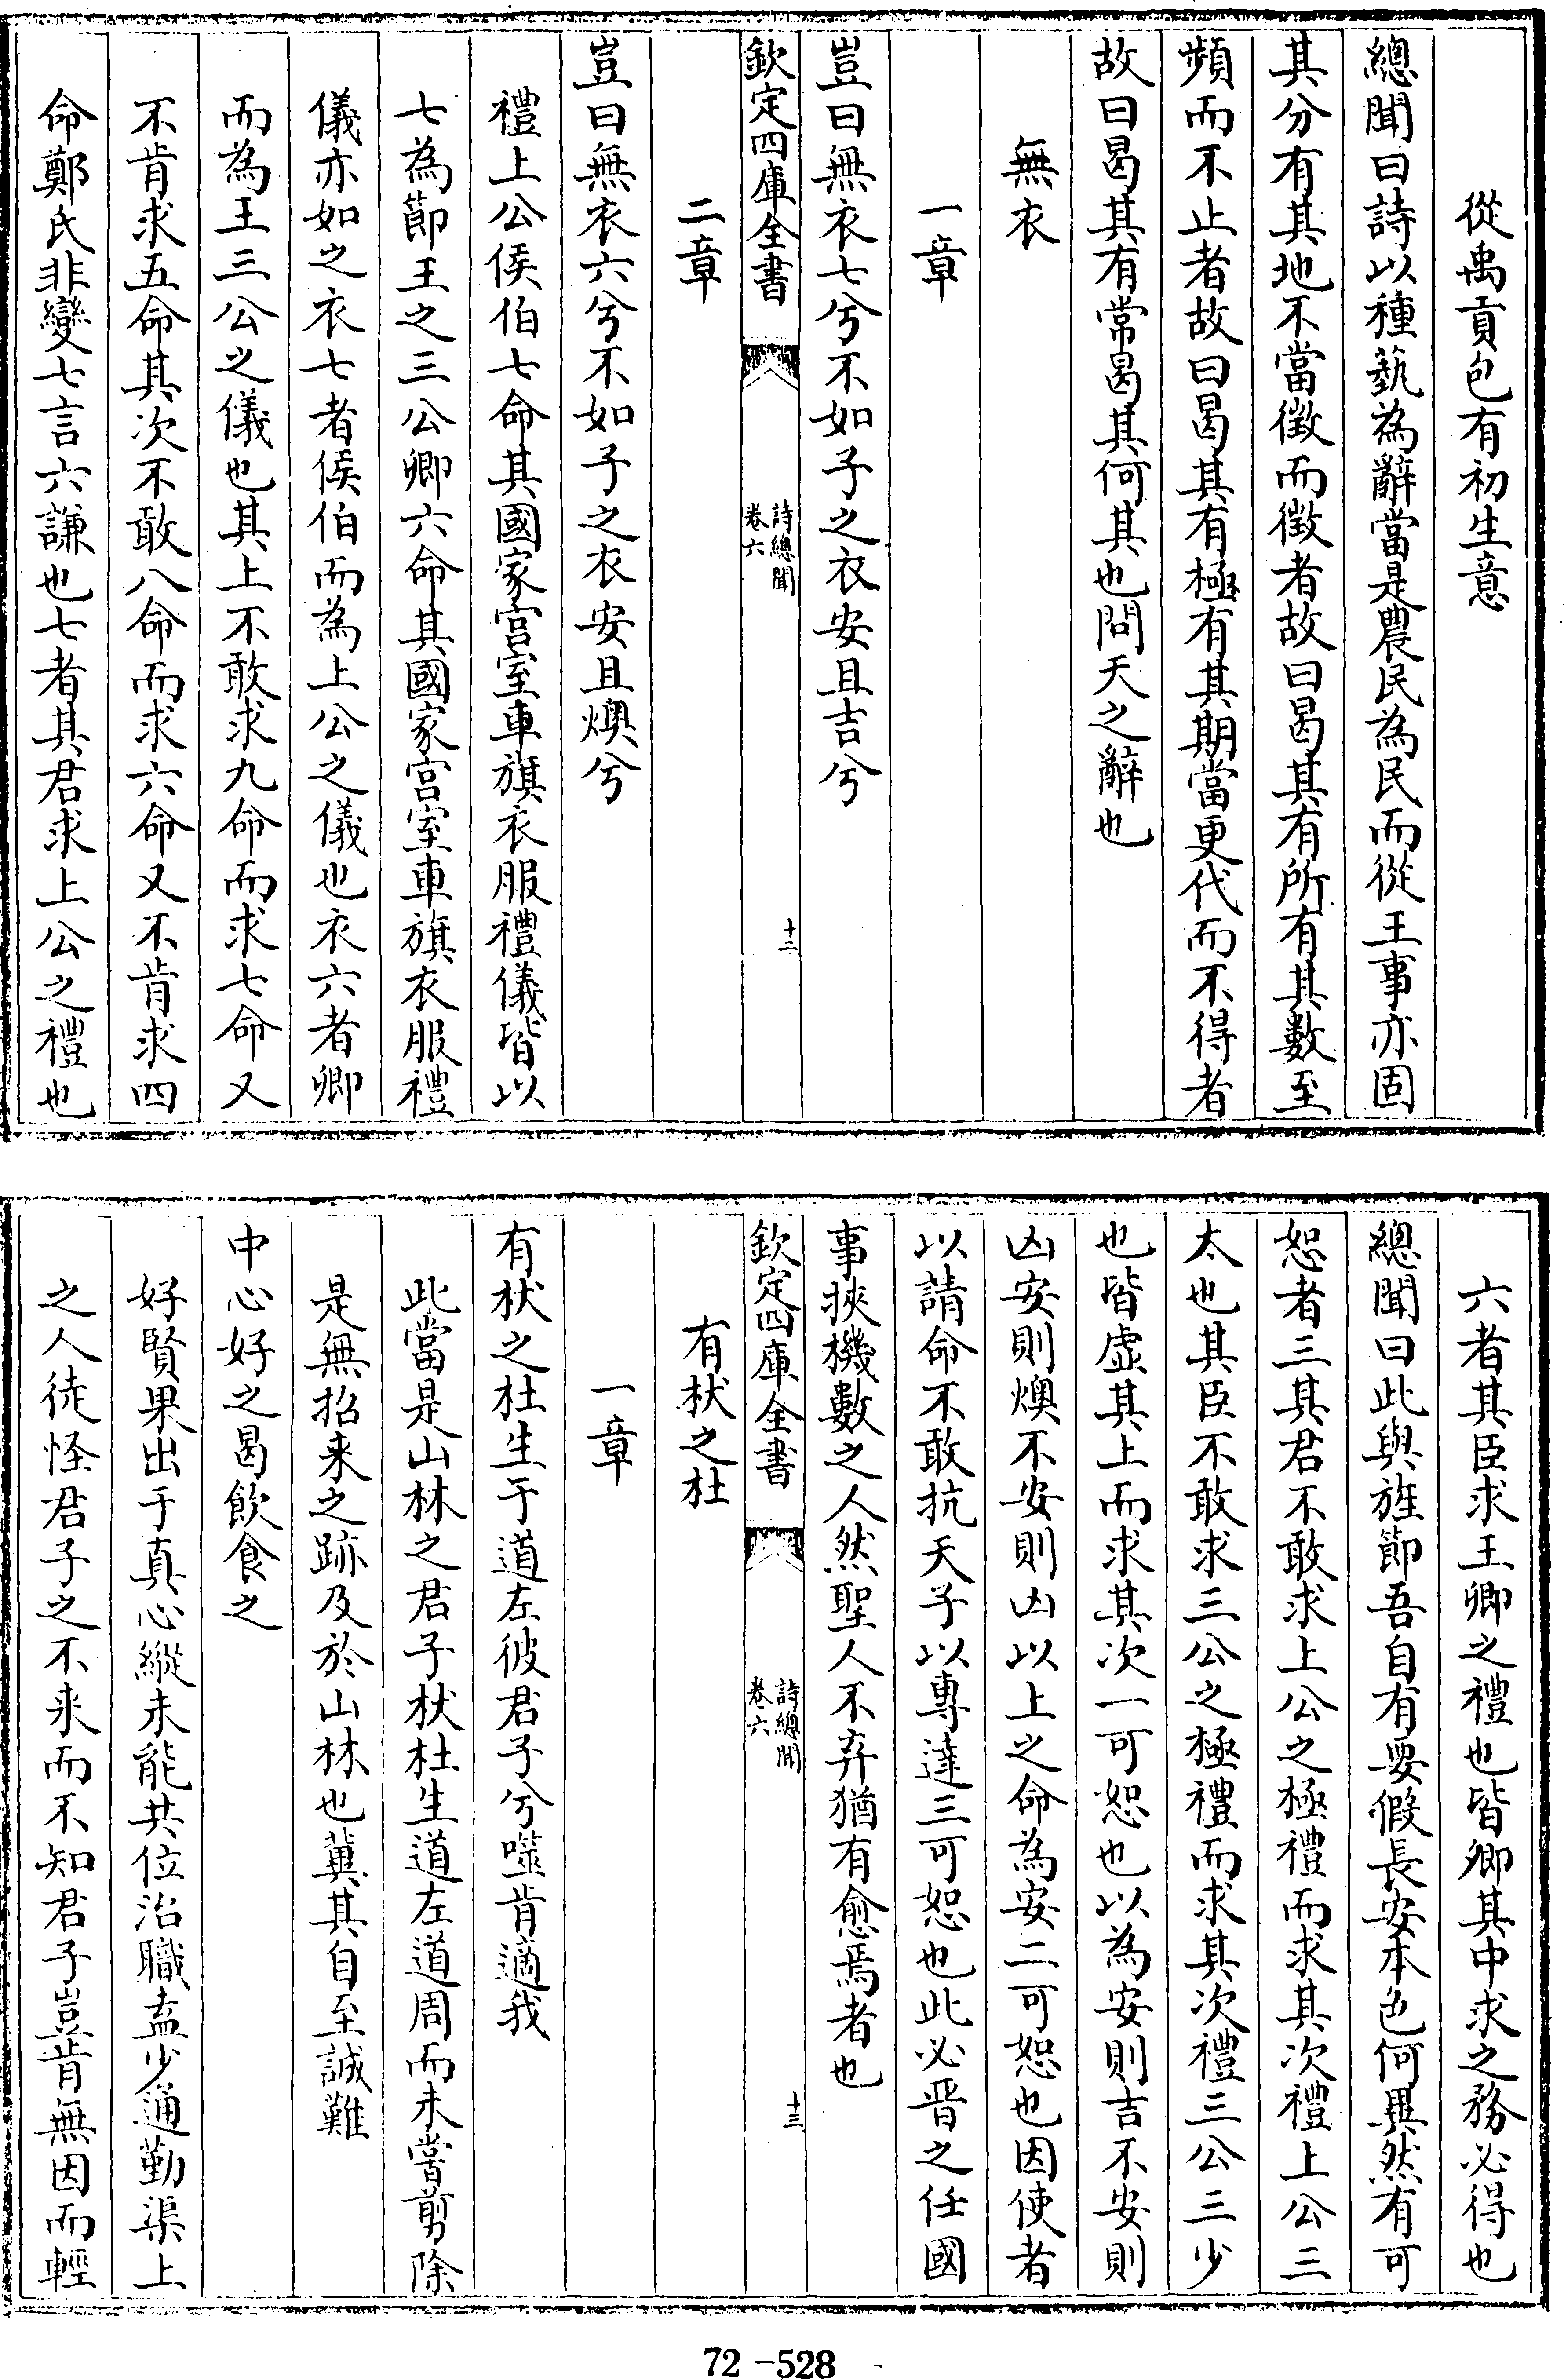 從禹貢包有初生意
總聞曰詩以種蓺為辭當是農民為民而從王事亦固
其分有其地不當徴而徴者故曰曷其有所有其數至
頻而不止者故曰曷其有極有其期當更代而不得者
故曰曷其有常曷其何其也問天之辭也
無衣
一章
豈曰無衣七兮不如子之衣安且吉兮
欽定四庫全書
詩總聞
卷六
十二
二章
豈曰無衣六兮不如子之衣安且燠兮
禮上公侯伯七命其國家宫室車旗衣服禮儀皆以
七為節王之三公卿六命其國家宫室車旗衣服禮
儀亦如之衣七者侯伯而為上公之儀也衣六者卿
而為王三公之儀也其上不敢求九命而求七命又
不肯求五命其次不敢八命而求六命又不肯求四
命鄭氏非變七言六謙也七者其君求上公之禮也
六者其臣求王卿之禮也皆卿其中求之務必得也
總聞曰此與旌節吾自有要假長安本色何異然有可
恕者三其君不敢求上公之極禮而求其次禮上公三
太也其臣不敢求三公之極禮而求其次禮三公三少
也皆虚其上而求其次一可恕也以為安則吉不安則
凶安則燠不安則凶以上之命為安二可恕也因使者
以請命不敢抗天子以專達三可恕也此必晉之任國
事挾機數之人然聖人不弃猶有愈焉者也
欽定四庫全書
詩總聞
卷六
十三
有杕之杜
一章
有杕之杜生于道左彼君子兮噬肯適我
此當是山林之君子杕杜生道左道周而未嘗剪除
是無招来之跡及於山林也冀其自至誠難
中心好之曷飲食之
好賢果出于真心縱未能共位治職盍少通勤渠上
之人徒怪君子之不来而不知君子豈肯無因而輕
72-528